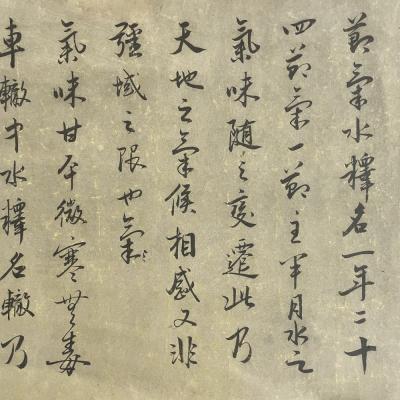 節氣水釋名一年二十
四節氣一節主半月水之
氣味隨之變遷此乃
天地之氣候相感又非
疆域之限也氣〻
氣味甘平微寒無毒
車轍中水釋名轍乃